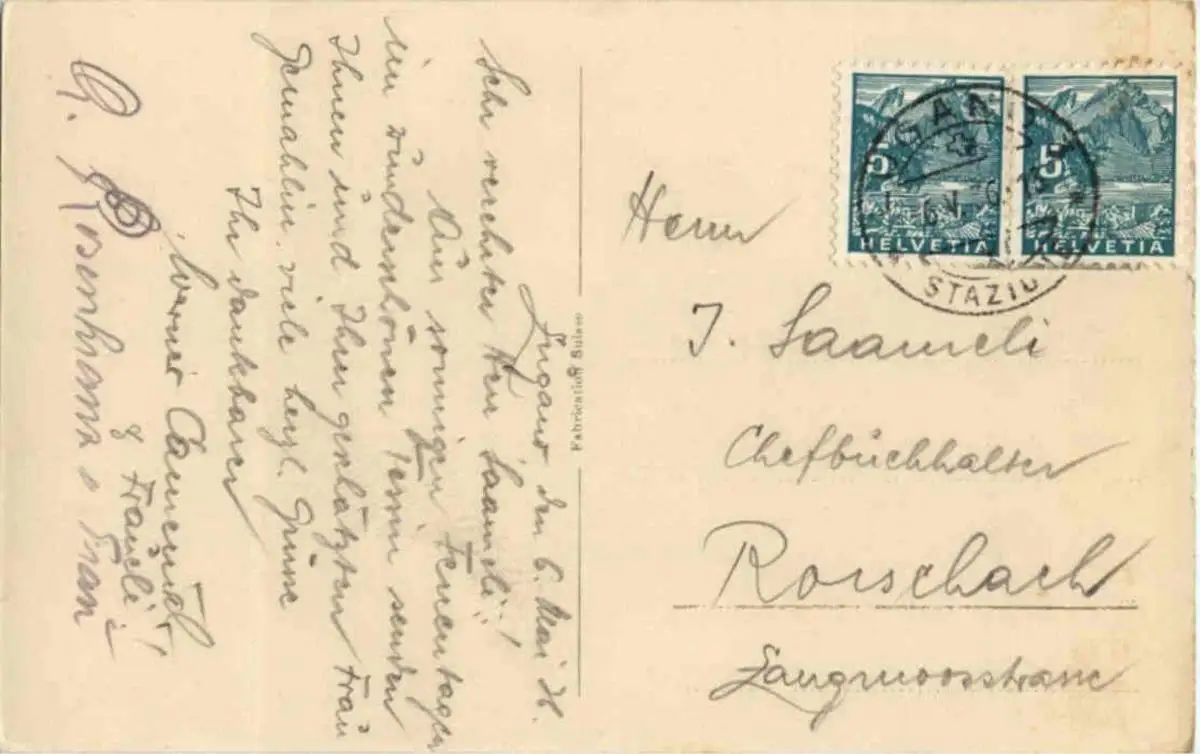 Lugano den 6. Mai 36.
Sehr verehrter Herr Saameli!
Aus sonnigen Ferientagen
im wunderschönen Tessin senden
Ihnen und Ihrer geschätzten Frau
Gemahlin viele herzl. Grüsse
Ihr dankbarer
Werner
& Fraueli!
& Frau
Fabrication Suisse
5
HELVETIA
5
HELVETIA
LUGANO
6.V.
STAZIONE
Herrn
J. Saameli
Chefbuchhalter
Rorschach
Langmoosstrasse